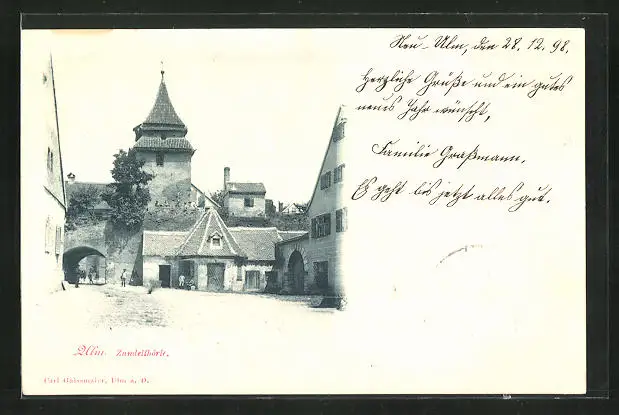 Neu-Ulm, den 28. 12. 98.
Herzliche Grüße und ein gutes
neues Jahr wünscht,
Familie Graßmann.
Es geht bis jetzt alles gut.
Ulm. Zundelthörle.
Carl Gaissmaier, Ulm a. D.